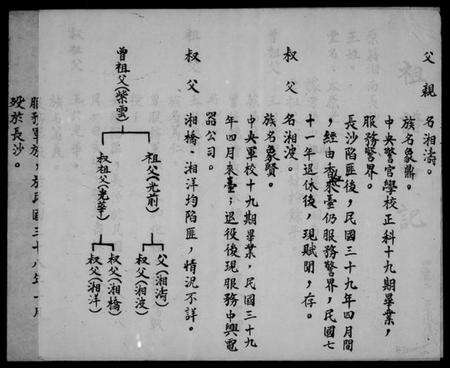 父親 名湘濤。
族名象鼎。
中央警官學校正科十九期畢業,
服務警界。
長沙陷匪後,民國三十九年四月間
,經由香港來臺仍服務警界,民國七
十一年退休後,現賦閒,存。
叔父 名湘波。
族名象賢。
中央軍校十九期畢業,民國三十九
年四月來臺;退役後現服務中興電
器公司。
叔父 湘橋、湘洋均陷匪,情況不詳。
曾祖父(紫雲)
祖父(光前)
叔祖父(光華)
父(湘濤)
叔父(湘波)
叔父(湘橋)
叔父(湘洋)
服務軍旅,於民國三十八年一月
歿於長沙。